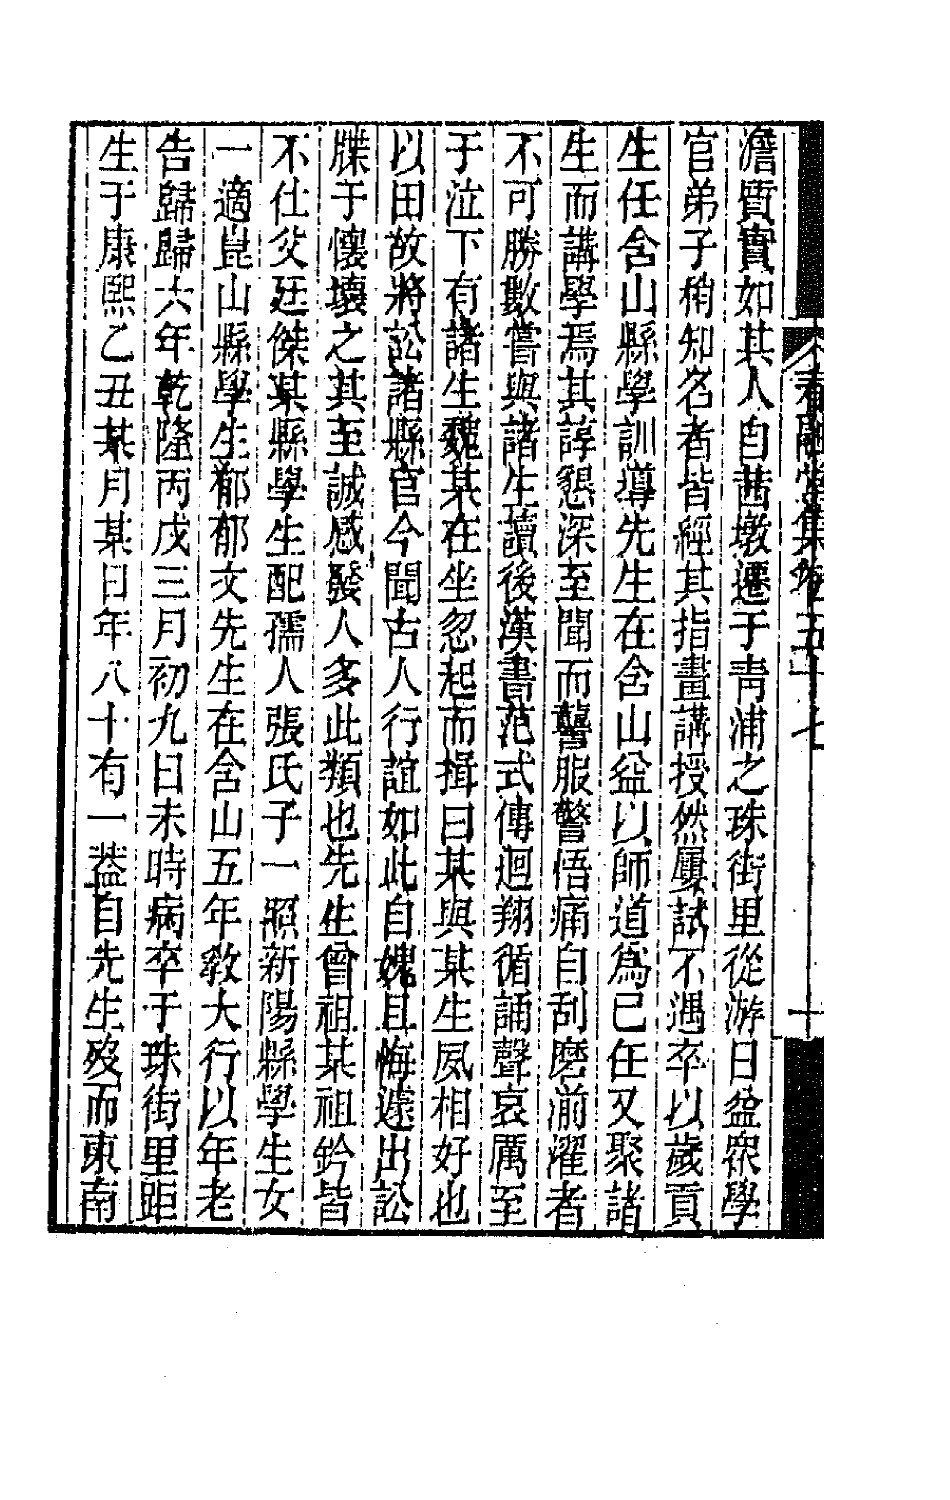 春融堂集卷五十七 十
澹質實如其人自茜墩遷于靑浦之珠街里從游日益衆學
官弟子稍知名者皆經其指畫講授然屢試不遇卒以歲貢
生任含山縣學訓導先生在含山益以師道爲己任又聚諸
生而講學焉其諄懇深至聞而讋服警悟痛自刮磨湔濯者
不可勝數嘗與諸生讀後漢書范式傳迴翔循誦聲哀厲至
于泣下有諸生魏某在坐忽起而揖曰某與某生夙相好也
以田故將訟諸縣官今聞古人行誼如此自媿且悔遽出訟
牒于懷壞之其至誠感發人多此類也先生曾祖某祖鈐皆
不仕父廷傑某縣學生配孺人張氏子一照新陽縣學生女
一適崑山縣學生郁郁文先生在含山五年敎大行以年老
告歸歸六年乾隆丙戌三月初九日未時病卒于珠街里距
生于康熙乙丑某月某日年八十有一葢自先生歿而東南